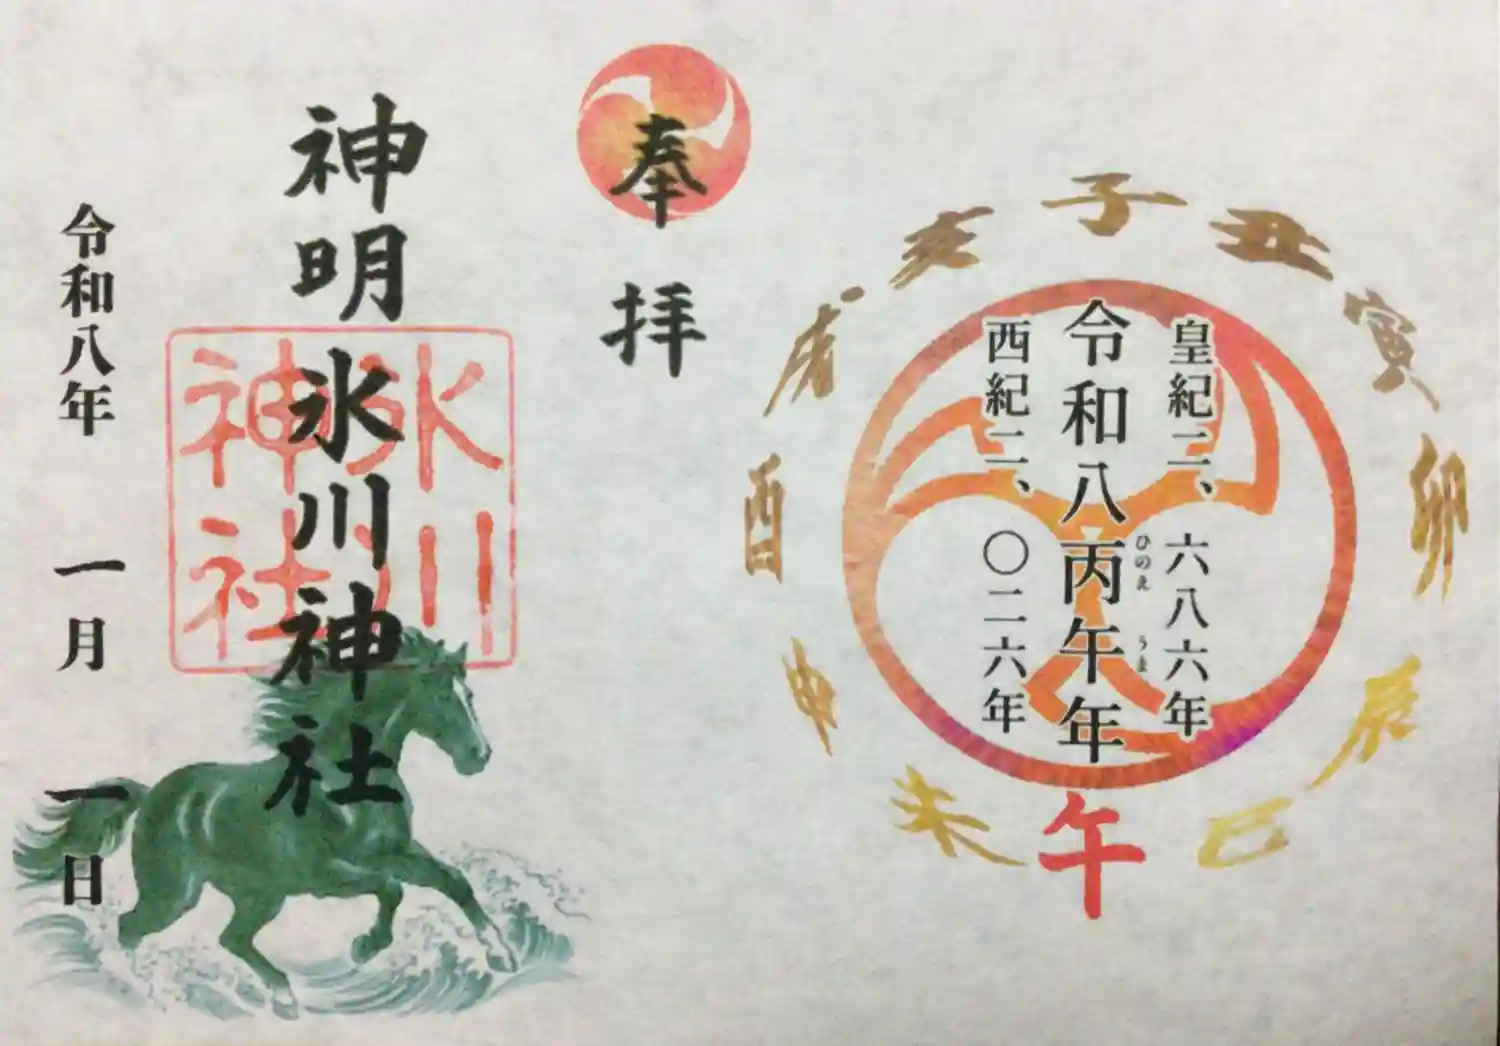 子
丑
寅
卯
辰
巳
午
未
申
酉
戌
亥
皇紀二、六八六年
令和八丙午年
ひのえ
うま
西紀二、〇二六年
奉拝
神明氷川神社
氷川
神社
令和八年 一月 一日